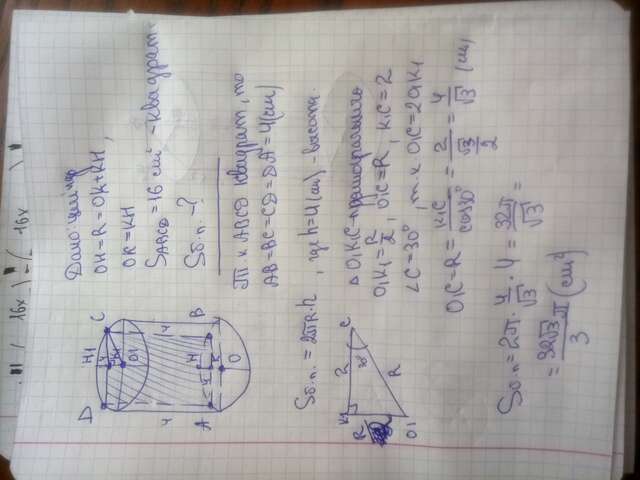 Дано: цилиндр
OH=R=OK+KH,
OK=KH
S_ABCD=16 см² -квадрат
Sб.п. -?
Т.к ABCD квадрат, то
AB=BC=CD=DA=4(см)
Sб.п.=2πR·h, где h=4(см)-высота.
△ O1K1C-прямоугольный
O1K1=R/2, O1C=R, K1C=2
∠C=30°, т.к. O1C=2O1K1
O1C=R=K1C/cos30°=2/(√3/2)=4/√3 (см)
Sб.п=2π·4/√3·4=32π/√3=
=32√3π/3 (см²)
D H1 C
4
K1
O1
4 4
H
K
A B
O
K1 2 C
30°
R
2
R
O1
16x
16x